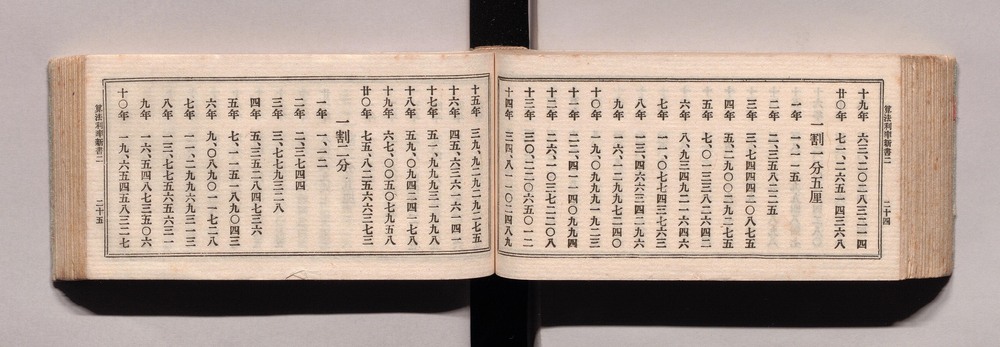 十九年　六三、二〇二八三二一四
廿〇年　七一、二六五一四三六八
一割一分五厘
一年　一、一一五
二年　二、三五八二二五
三年　三、七四四四二〇八七五
四年　五、二九〇〇二九二七五
五年　七、〇一三三八二六四二
六年　八、九三四九二一六四六
七年　一一、〇七七四三七六三
八年　一三、四六六三四二九六
九年　一六、一二九九七二四〇
十〇年　一九、〇九九九一九二三
十一年　二二、四一一四〇九九四
十二年　二六、一〇三七二二〇八
十三年　三〇、二二〇六五〇一二
十四年　三四、八一一〇二四八九
算法利率新書二
二十四
十五年　三九、九二九二九二七五
十六年　四五、六三六一六一四一
十七年　五一、九九九三一九九八
十八年　五九、〇九四二四一七八
十九年　六七、〇〇五〇七九五八
廿〇年　七五、八二五六六三七三
一割二分
一年　一、一二
二年　二、三七四四
三年　三、七七九三二八
四年　五、三五二八四七三六
五年　七、一一五一八九〇四三
六年　九、〇八九〇一一七二八
七年　一一、二九九六九三一三
八年　一三、七七五六五六三一
九年　一六、五四八七三五〇六
十〇年　一九、六五四五八三二七
算法利率新書二
二十五